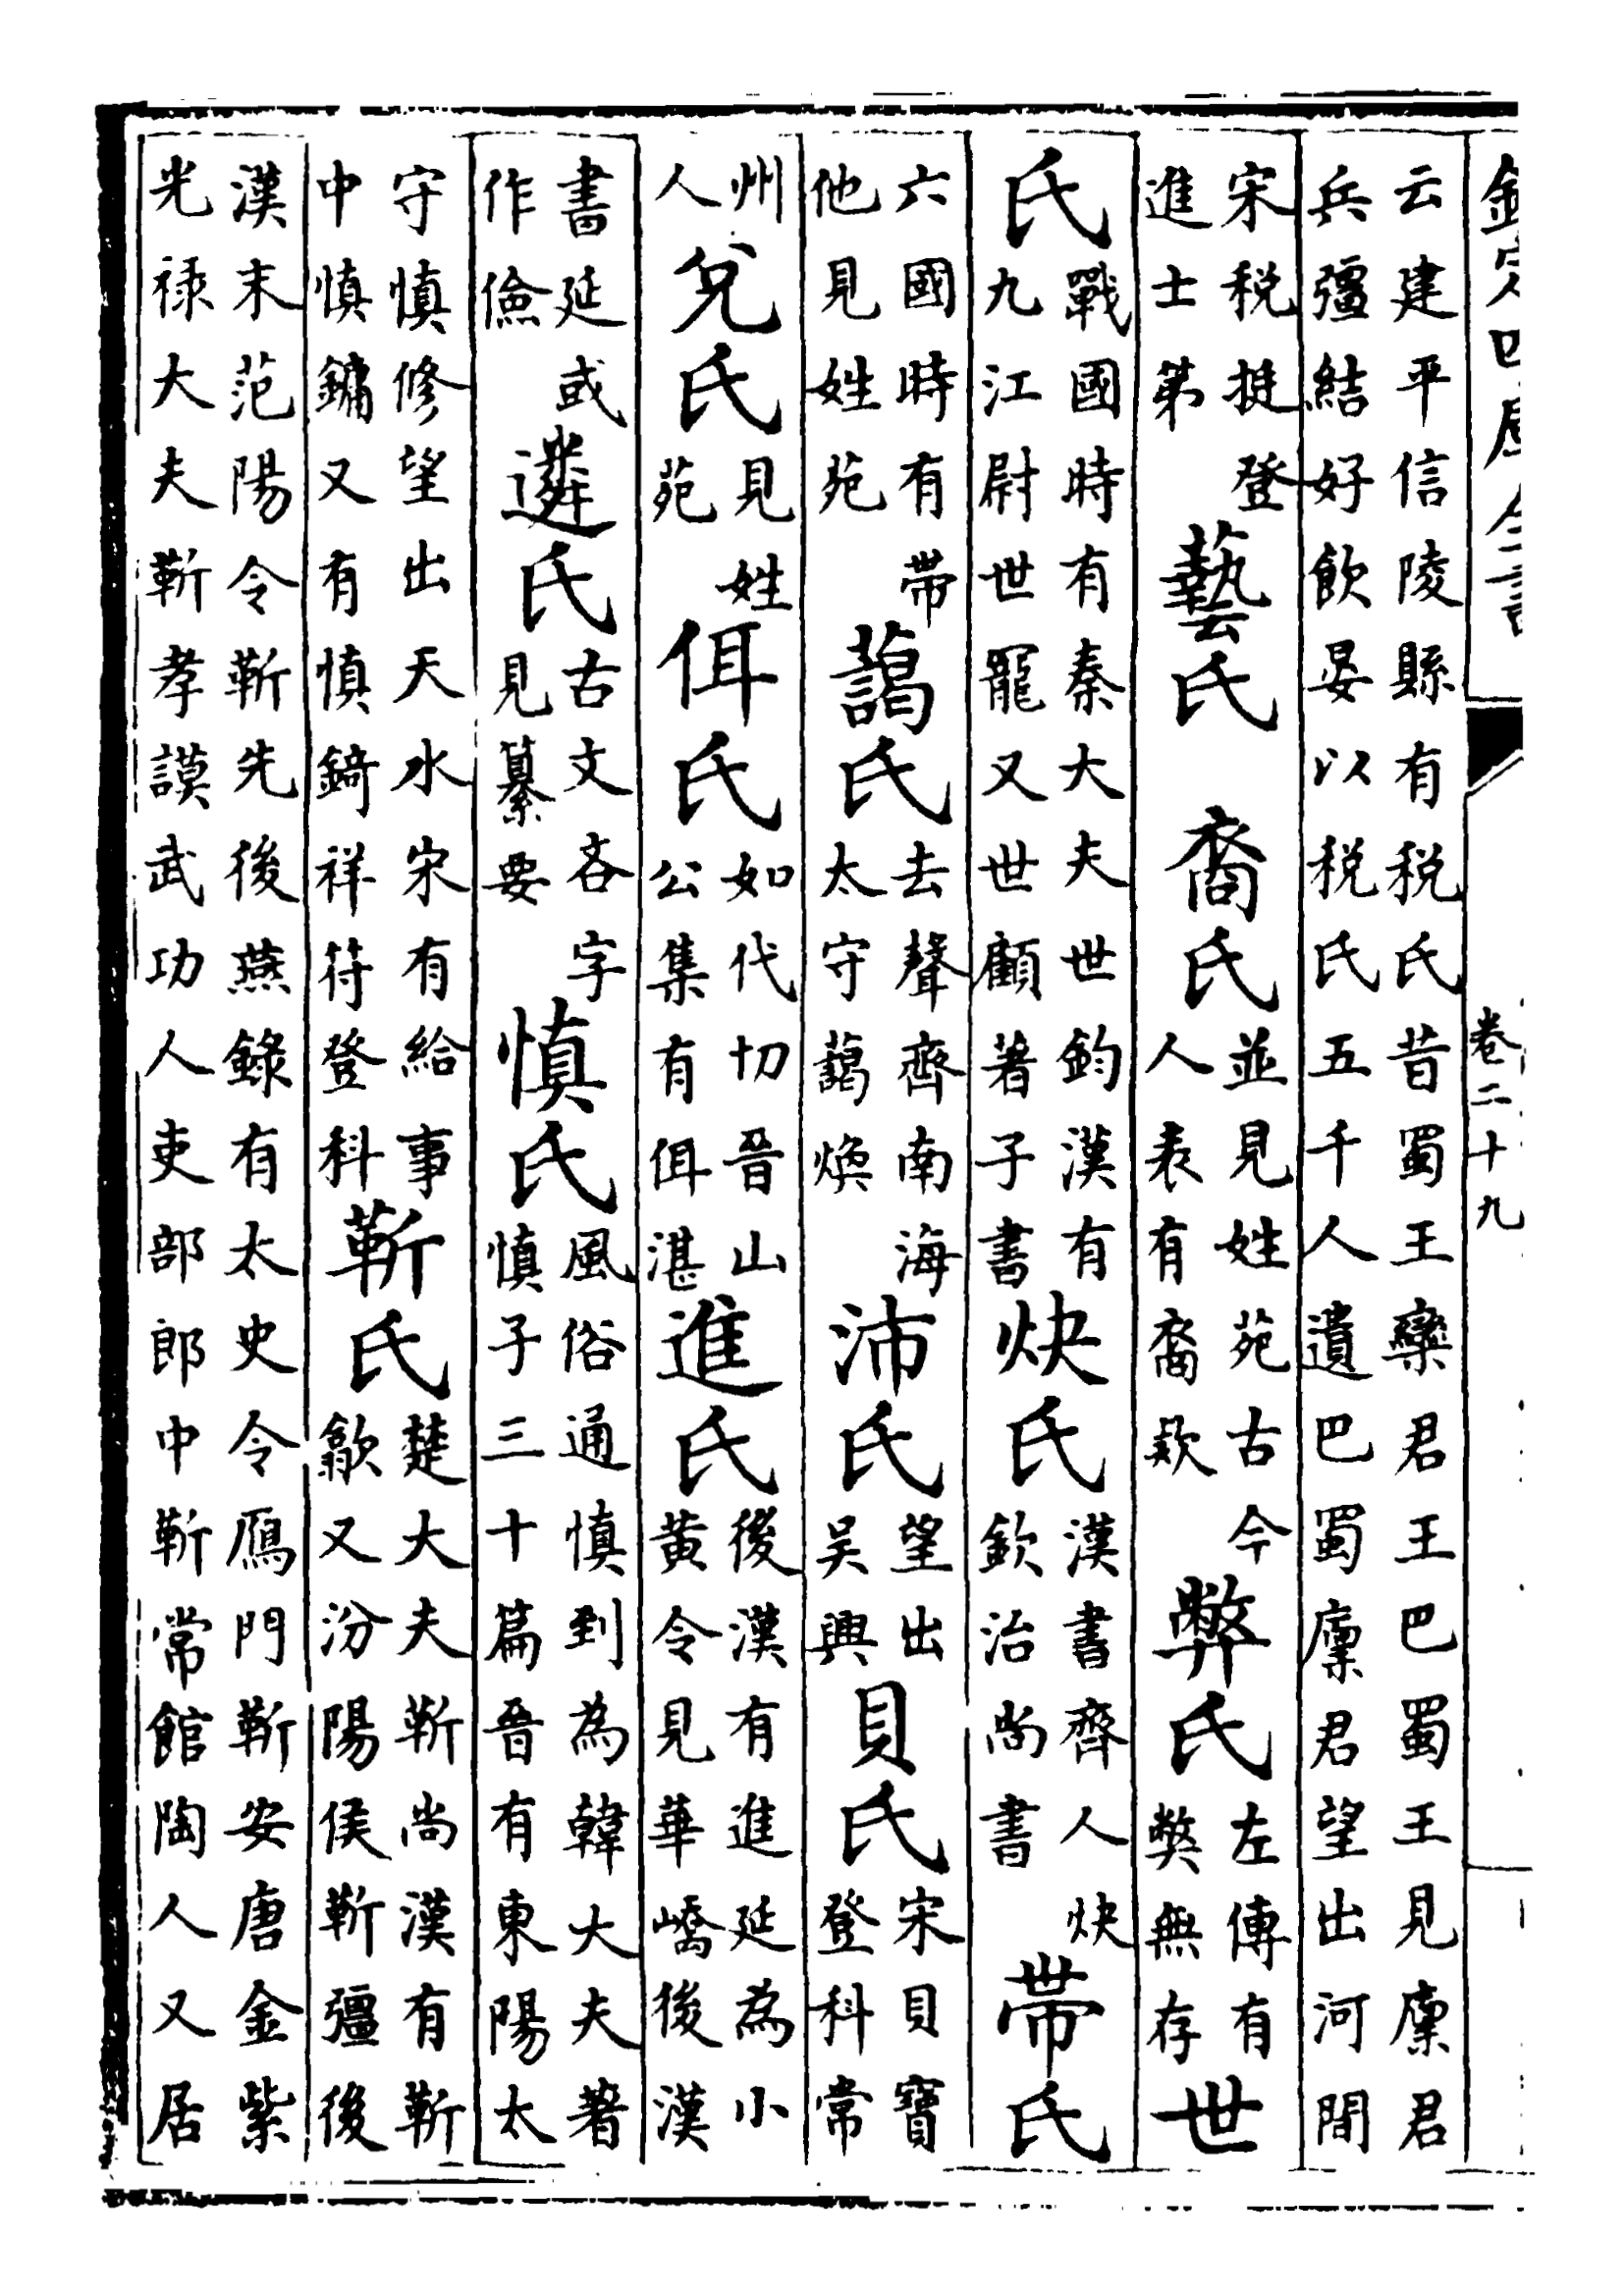 欽定四庫全書
卷二十九
云建平信陵縣有税氏昔蜀王欒君王巴蜀王見廩君
兵彊結好飲宴以税氏五千人遺巴蜀廩君望出河間
宋税挺登
進士第
藝氏
裔氏
並見姓苑古今
人表有裔欵
弊氏
左傳有
獘無存
世
氏
戰國時有秦大夫世鈞漢有
九江尉世寵又世顧著子書
炔氏
漢書齊人炔
欽治尚書
帶氏
六國時有帶
他見姓苑
藹氏
去聲齊南海
太守藹煥
沛氏
望出
吴興
貝氏
宋貝寶
登科常
州
人
兌氏
見姓
苑
佴氏
如代切晉山
公集有佴湛
進氏
後漢有進延為小
黄令見華嶠後漢
書延或
作儉
遴氏
古文吝字
見纂要
慎氏
風俗通慎到為韓大夫著
慎子三十篇晉有東陽太
守慎修望出天水宋有給事
中慎鏞又有慎錡祥符登科
靳氏
楚大夫靳尚漢有靳
歙又汾陽侯靳彊後
漢末范陽令靳先後燕錄有太史令鴈門靳安唐金紫
光禄大夫靳孝謨武功人吏部郎中靳常館陶人又居